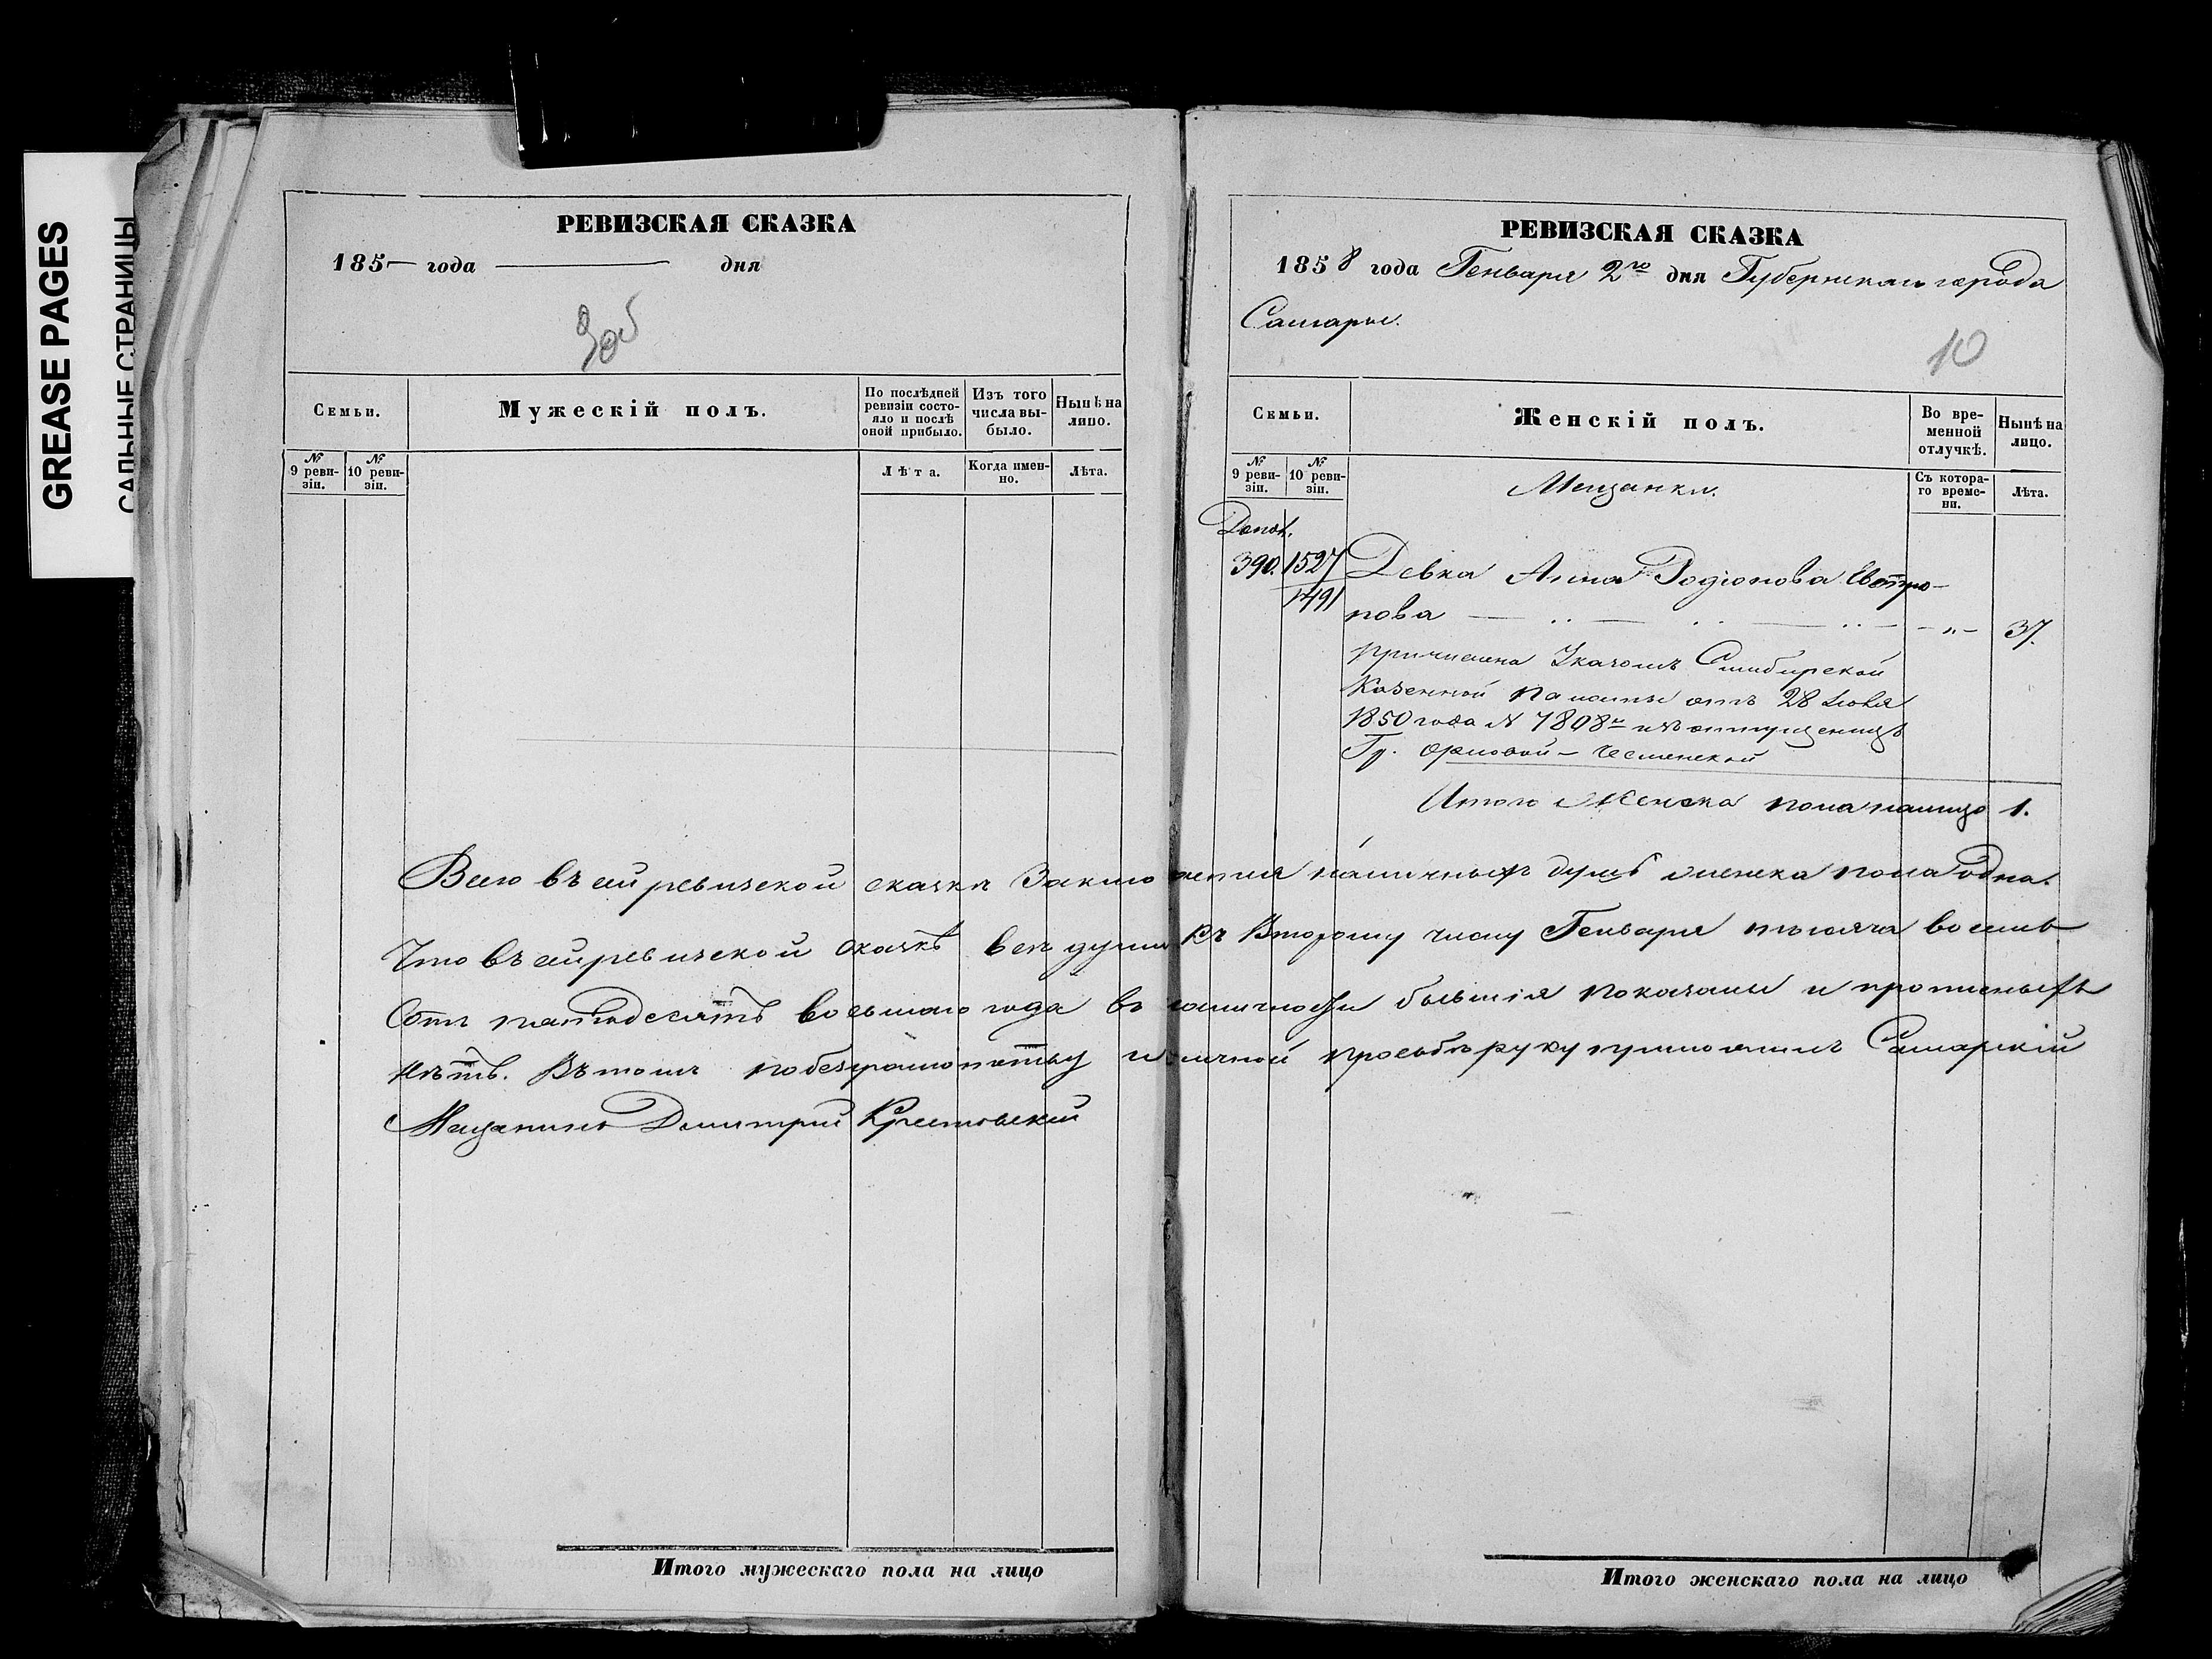 GREASE PAGES
САЛЬНЫЕ СТРАНИЦЫ
РЕВИЗСКАЯ СКАЗКА
185— года ——— дня
Семьи.
Мужескій полъ.
По послѣдней ревизіи состояло и послѣ оной прибыло.
Изъ того числа выбыло.
Нынѣ на лицо.
№ 9 ревизіи.
№ 10 ревизіи.
Лѣта.
Когда именно.
Лѣта.
РЕВИЗСКАЯ СКАЗКА
1858 года Генваря 2го дня Губернскаго города
Самары.
10
Семьи.
Женскій полъ.
Во временной отлучкѣ.
Нынѣ на лицо.
№ 9 ревизіи.
№ 10 ревизіи.
Мещанки.
Съ котораго времени.
Лѣта.
Допол.
390. 1527 Девка Анна Родіонова Евтро-
1491 пова — „ — 37.
Причислена Указомъ Симбирской
Казенной Палаты отъ 28 Іюля
1850 года № 7808й изъ отпущенницъ
Гр. Орловой-Чесменской
Итого Женска пола налицо 1.
Всего въ сей ревизской сказки Заключается наличныхъ душъ женска пола одна.
Что въ сей ревизской сказкѣ всѣ души къ Второму числу Генваря тысяча восемь
Сотъ пятьдесятъ восьмаго года въ наличности бывшія показаны и прописныхъ
нѣтъ. Въ томъ по безграмотству и личной просьбѣ руку приложилъ Самарскій
Мещанинъ Дмитрій Крестовскій
Итого мужескаго пола на лицо
Итого женскаго пола на лицо